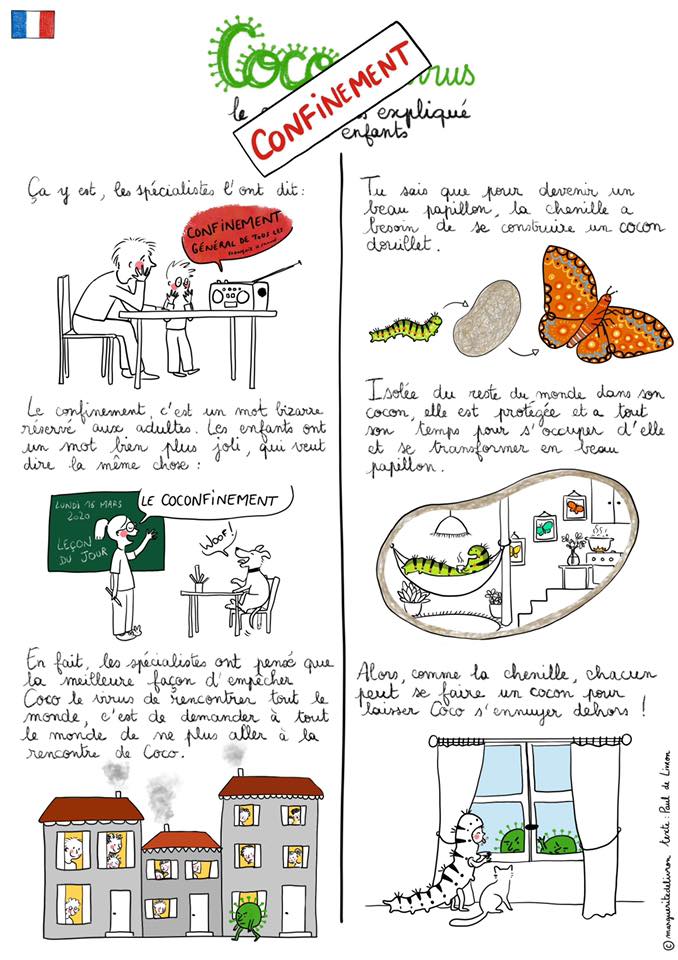 Coco virus
CONFINEMENT
le expliqué
enfants
Ça y est, les spécialistes l'ont dit :
CONFINEMENT
GÉNÉRAL DE TOUS LES
FRANÇAIS
Le confinement, c'est un mot bizarre
réservé aux adultes. Les enfants ont
un mot bien plus joli, qui veut
dire la même chose :
LUNDI 16 MARS
2020
LEÇON
DU JOUR
LE COCONFINEMENT
WOOF !
En fait, les spécialistes ont pensé que
la meilleure façon d'empêcher
Coco le virus de rencontrer tout le
monde, c'est de demander à tout
le monde de ne plus aller à la
rencontre de Coco.
Tu sais que pour devenir un
beau papillon, la chenille a
besoin de se construire un cocon
douillet.
Isolée du reste du monde dans son
cocon, elle est protégée et a tout
son temps pour s'occuper d'elle
et se transformer en beau
papillon.
Alors, comme la chenille, chacun
peut se faire un cocon pour
laisser Coco s'ennuyer dehors !
© margueritedelivron texte : Paul de Livron